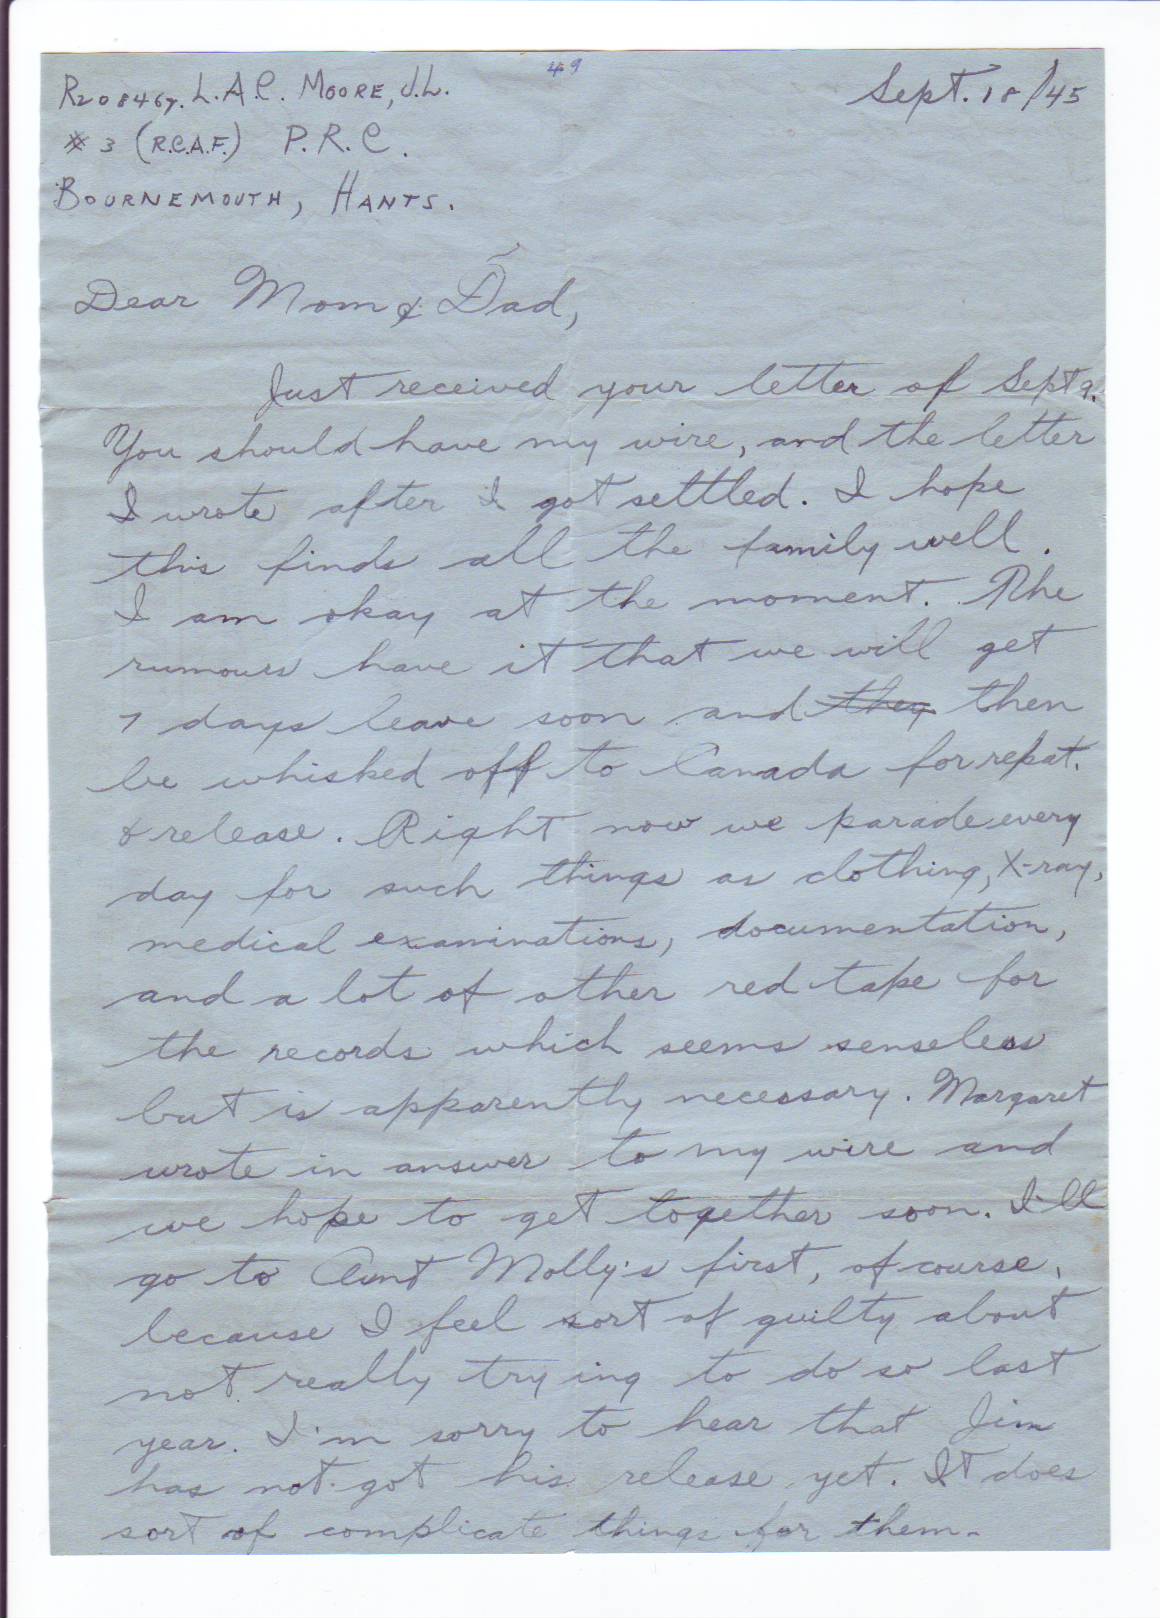 49
R208467. L.A.C. MOORE, J.L.
Sept. 18/45
# 3 (R.C.A.F.) P.R.C.
BOURNEMOUTH, HANTS.
Dear Mom & Dad,
Just received your letter of Sept 9.
You should have my wire, and the letter
I wrote after I got settled. I hope
this finds all the family well.
I am okay at the moment. The
rumours have it that we will get
7 days leave soon and they then
be whisked off to Canada for repat.
& release. Right now we parade every
day for such things as clothing, X-ray,
medical examinations, documentation,
and a lot of other red tape for
the records which seems senseless
but is apparently necessary. Margaret
wrote in answer to my wire and
we hope to get together soon. I'll
go to Aunt Molly's first, of course,
because I feel sort of guilty about
not really trying to do so last
year. I'm sorry to hear that Jim
has not got his release yet. It does
sort of complicate things for them.